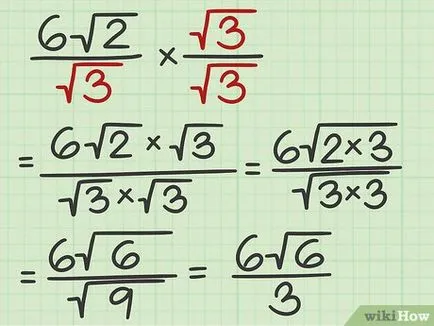 6√2/√3 × √3/√3
= 6√2×√3/√3×√3 = 6√2×3/√3×3
= 6√6/√9 = 6√6/3
wikiHow